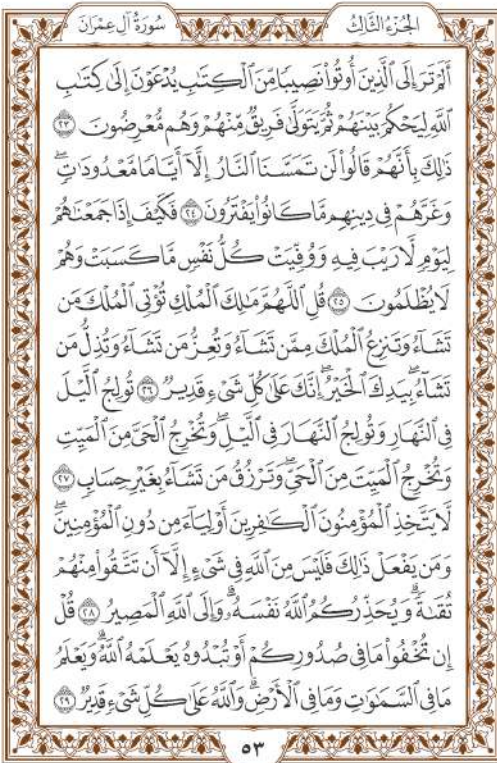 سُورَةُ آلِ عِمْرَانَ الجُزْءُ الثَّالِثُ
أَلَمْ تَرَ إِلَى ٱلَّذِينَ أُوتُوا۟ نَصِيبًا مِّنَ ٱلْكِتَٰبِ يُدْعَوْنَ إِلَىٰ كِتَٰبِ
ٱللَّهِ لِيَحْكُمَ بَيْنَهُمْ ثُمَّ يَتَوَلَّىٰ فَرِيقٌ مِّنْهُمْ وَهُم مُّعْرِضُونَ ٢٣
ذَٰلِكَ بِأَنَّهُمْ قَالُوا۟ لَن تَمَسَّنَا ٱلنَّارُ إِلَّآ أَيَّامًا مَّعْدُودَٰتٍۖ
وَغَرَّهُمْ فِى دِينِهِم مَّا كَانُوا۟ يَفْتَرُونَ ٢٤ فَكَيْفَ إِذَا جَمَعْنَٰهُمْ
لِيَوْمٍ لَّا رَيْبَ فِيهِ وَوُفِّيَتْ كُلُّ نَفْسٍ مَّا كَسَبَتْ وَهُمْ
لَا يُظْلَمُونَ ٢٥ قُلِ ٱللَّهُمَّ مَٰلِكَ ٱلْمُلْكِ تُؤْتِى ٱلْمُلْكَ مَن
تَشَآءُ وَتَنزِعُ ٱلْمُلْكَ مِمَّن تَشَآءُ وَتُعِزُّ مَن تَشَآءُ وَتُذِلُّ مَن
تَشَآءُۖ بِيَدِكَ ٱلْخَيْرُۖ إِنَّكَ عَلَىٰ كُلِّ شَىْءٍ قَدِيرٌ ٢٦ تُولِجُ ٱلَّيْلَ
فِى ٱلنَّهَارِ وَتُولِجُ ٱلنَّهَارَ فِى ٱلَّيْلِۖ وَتُخْرِجُ ٱلْحَىَّ مِنَ ٱلْمَيِّتِ
وَتُخْرِجُ ٱلْمَيِّتَ مِنَ ٱلْحَىِّۖ وَتَرْزُقُ مَن تَشَآءُ بِغَيْرِ حِسَابٍ ٢٧
لَّا يَتَّخِذِ ٱلْمُؤْمِنُونَ ٱلْكَٰفِرِينَ أَوْلِيَآءَ مِن دُونِ ٱلْمُؤْمِنِينَۖ
وَمَن يَفْعَلْ ذَٰلِكَ فَلَيْسَ مِنَ ٱللَّهِ فِى شَىْءٍ إِلَّآ أَن تَتَّقُوا۟ مِنْهُمْ
تُقَىٰةًۗ وَيُحَذِّرُكُمُ ٱللَّهُ نَفْسَهُۥۗ وَإِلَى ٱللَّهِ ٱلْمَصِيرُ ٢٨ قُلْ
إِن تُخْفُوا۟ مَا فِى صُدُورِكُمْ أَوْ تُبْدُوهُ يَعْلَمْهُ ٱللَّهُۗ وَيَعْلَمُ
مَا فِى ٱلسَّمَٰوَٰتِ وَمَا فِى ٱلْأَرْضِۗ وَٱللَّهُ عَلَىٰ كُلِّ شَىْءٍ قَدِيرٌ ٢٩
٥٣